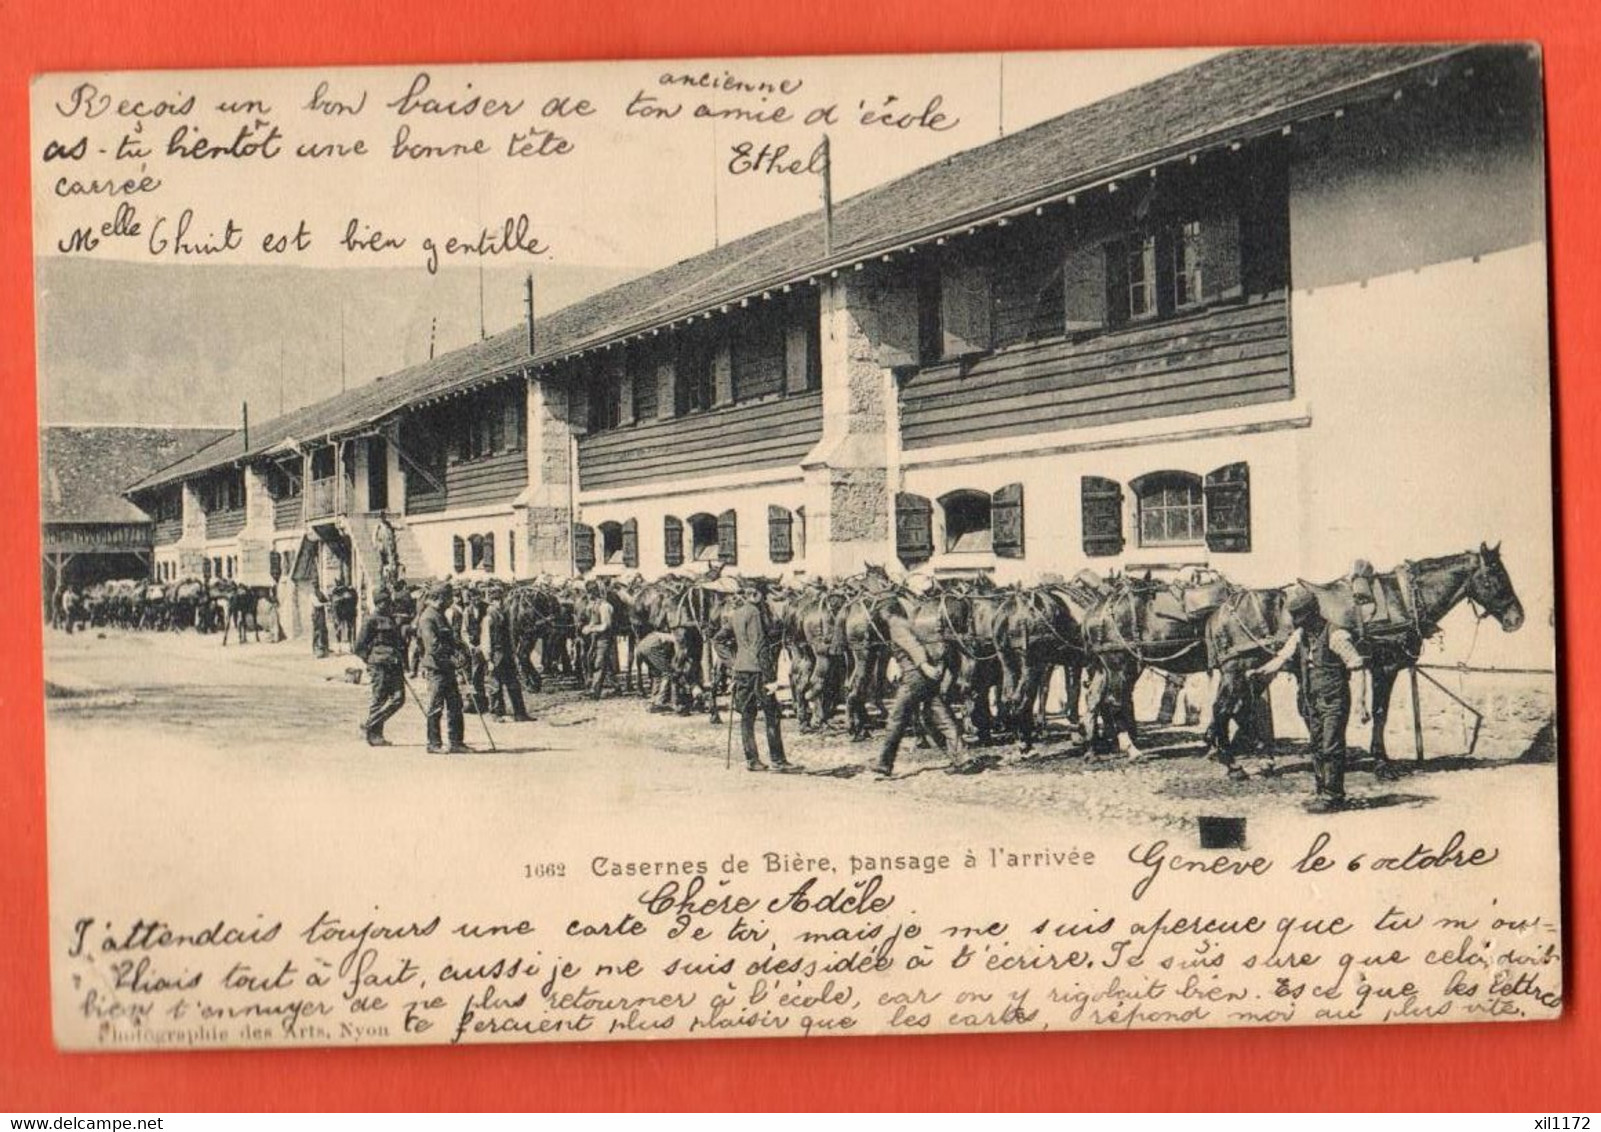 ancienne
Reçois un bon baiser de ton amie d'école
as-tu bientôt une bonne tête
Ethel
carrée
Melle Thuit est bien gentille.
1662 Casernes de Bière, pansage à l'arrivée
Genève le 6 octobre
Chère Adèle
J'attendais toujours une carte de toi, mais je me suis aperçue que tu m'ou=
bliais tout à fait, aussi je me suis dessidée à t'écrire. Je suis sure que cela doit
bien t'ennuyer de ne plus retourner à l'école, car on y rigolait bien. Es ce que les lettres
te feraient plus plaisir que les cartes, répond moi au plus vite.
Photographie des Arts, Nyon
xil1172